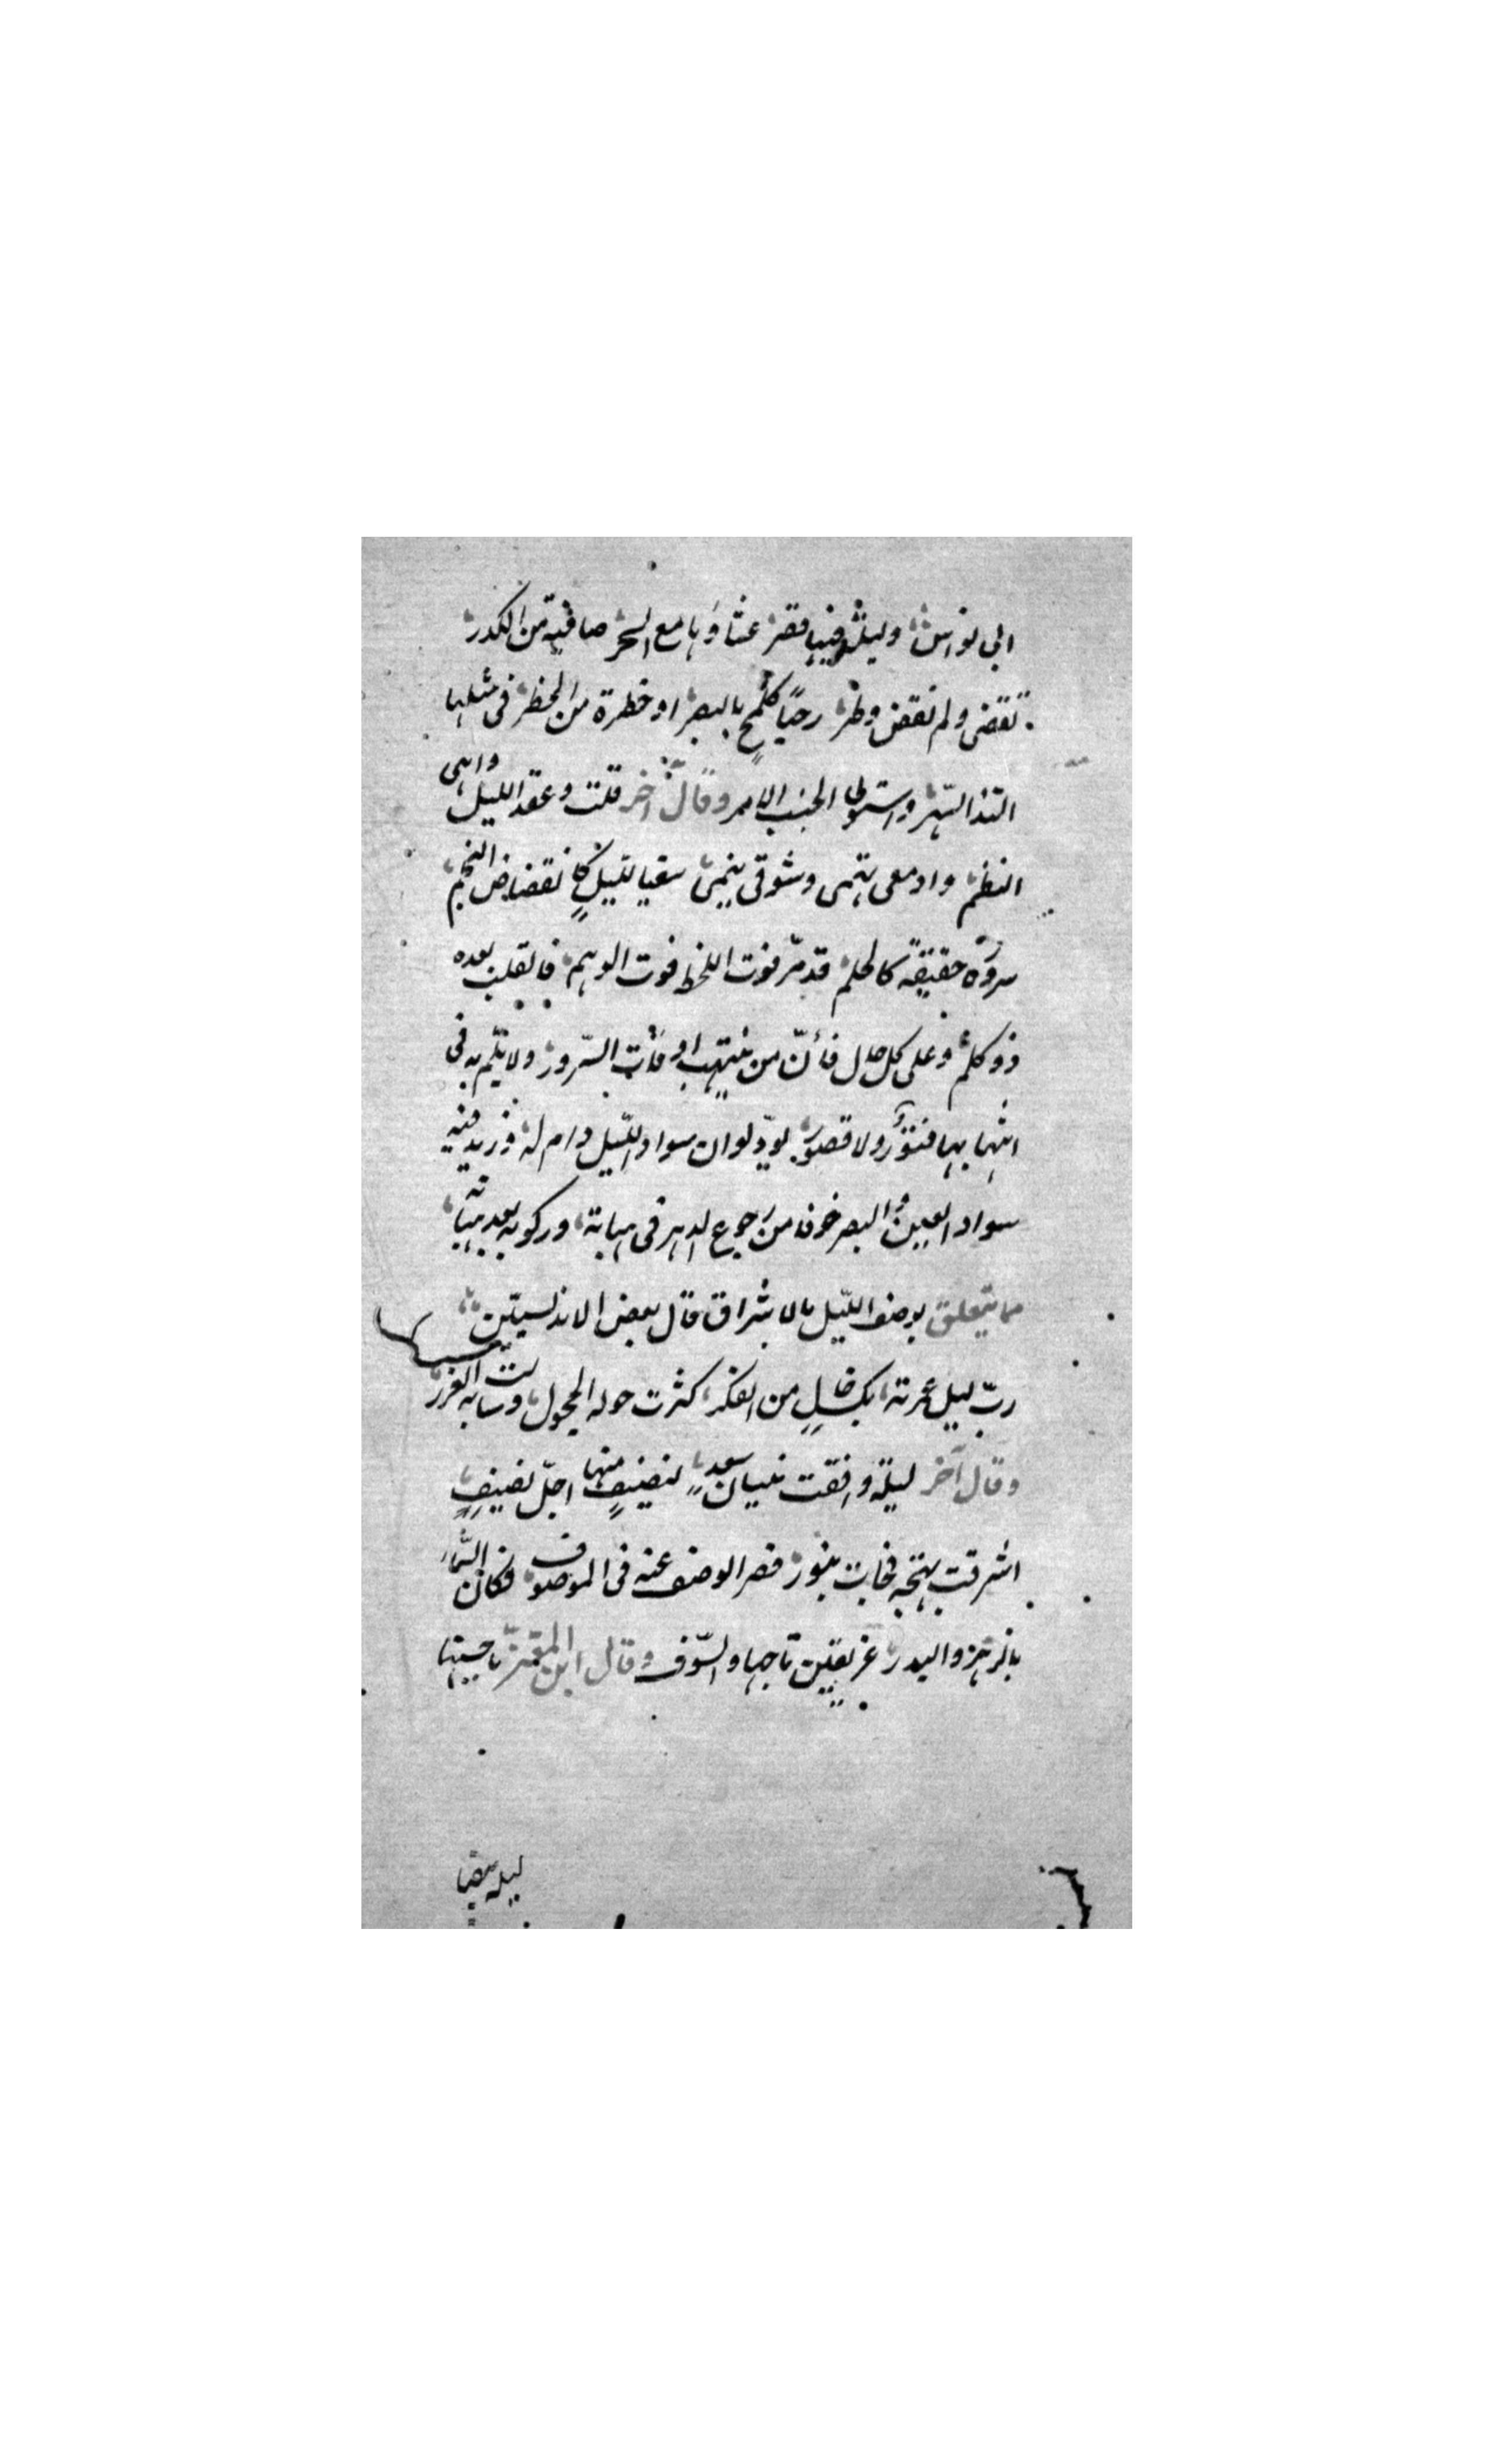 ابى نواس وليلة فيها قصر عشاؤها مع السحر صافية من الكدر
تقضى ولم تقض وطر رحيا كلمح بالبصر او خطرة من الخطر فى مثلها
التذ السهر واستولى الامر وقال آخر قلت وعقد الليل واهى
النظم وادمعى تهمى وشوقى ينمى سقيا لليل كانقضاض النجم
سروره حقيقة كالحلم قد مر فوت اللحظ فوت الوهم فانقلب بعده
ذو كلم وعلى كل حال فأن من ينتهب اوقات السرور ولا يلم به فى
انتهابها فتور ولا قصور يود لو ان سواد الليل دام له وزيد فيه
سواد العين والبصر خوفا من رجوع الدهر فى هباته وركوبه بعد
مما يتعلق بوصف الليل بالاشراق قال بعض الاندلسيين
رب ليل عمرته بك خال من الفكر كثرت حوله الحجول وسالت به الغرر
وقال آخر ليلة وافقت سعد لنصيف منها اجل نصيف
اشرقت بهجة فجات بنور قصر الوصف عنه فى الموصوف فكان السماء
بالزهر والبدر تاجها والشنوف وقال ابن المعتز يا حسنها
ليلة